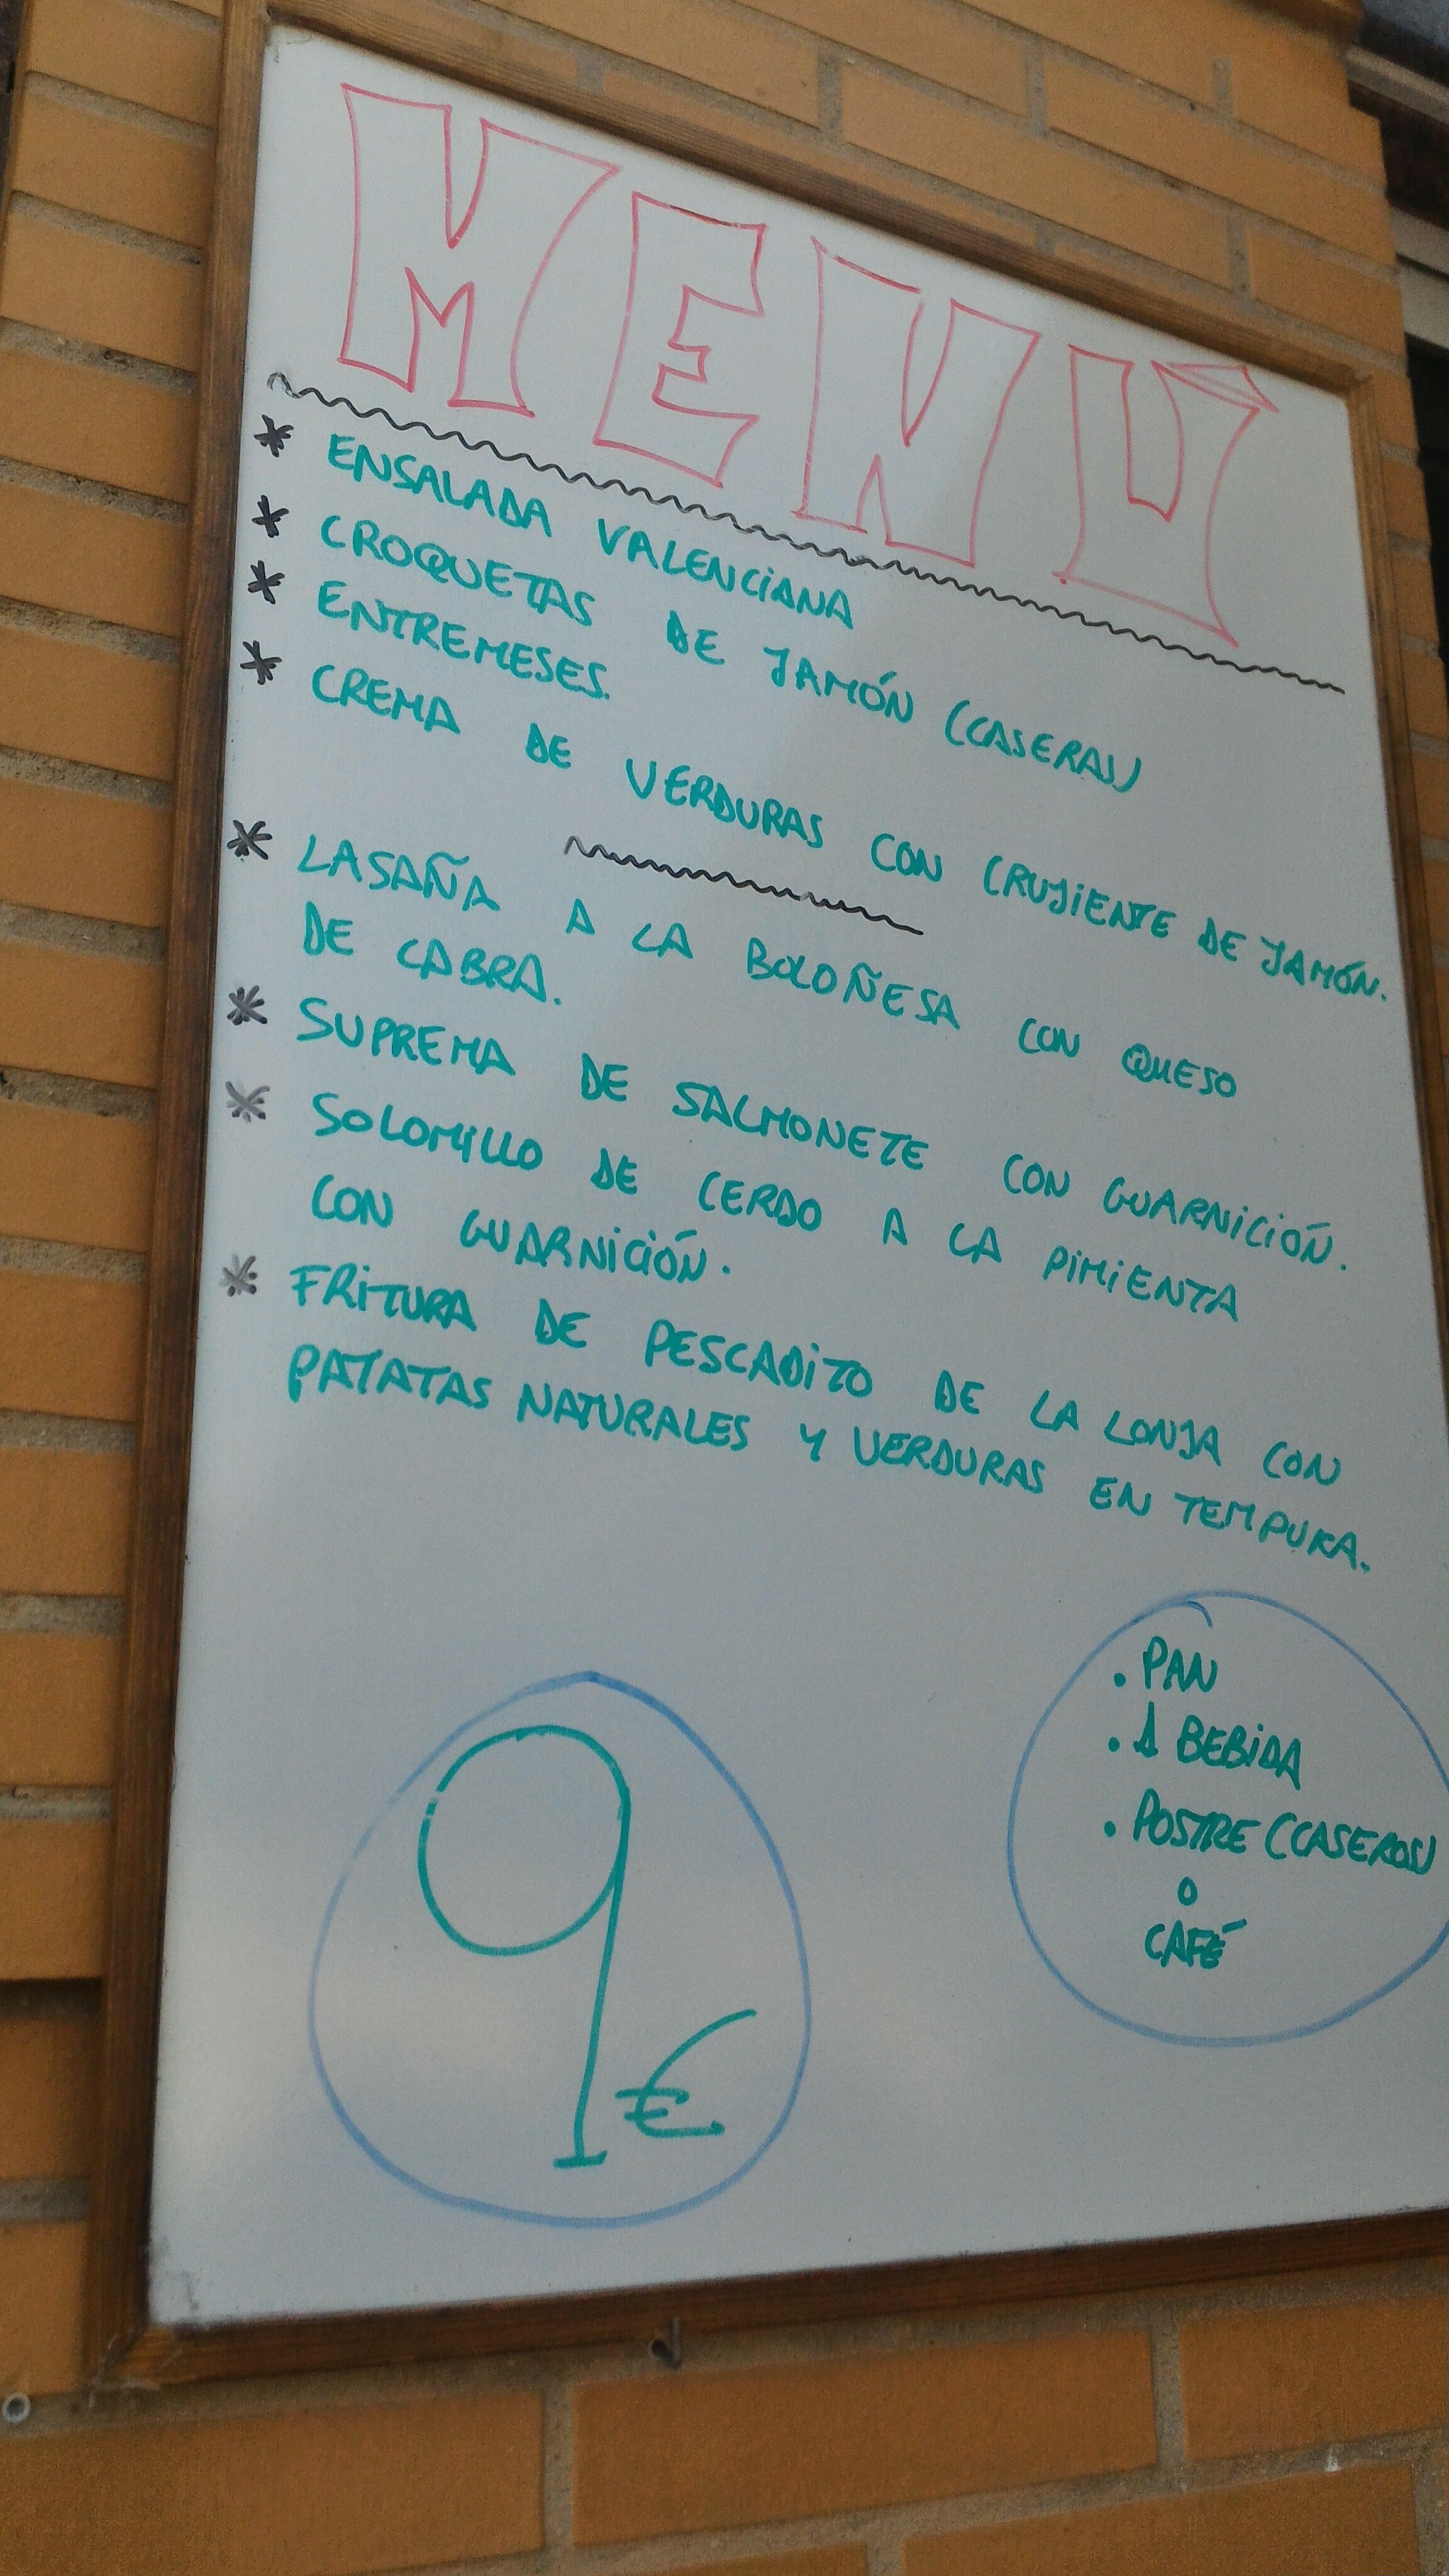 MENÚ
* ENSALADA VALENCIANA
* CROQUETAS DE JAMÓN (CASERAS)
* ENTREMESES.
* CREMA DE VERDURAS CON CRUJIENTE DE JAMÓN.
* LASAÑA A LA BOLOÑESA CON QUESO
DE CABRA.
* SUPREMA DE SALMONETE CON GUARNICIÓN.
* SOLOMILLO DE CERDO A LA PIMIENTA
CON GUARNICIÓN.
* FRITURA DE PESCADITO DE LA LONJA CON
PATATAS NATURALES Y VERDURAS EN TEMPURA.
• PAN
• 1 BEBIDA
• POSTRE (CASEROS)
O
CAFÉ
9€